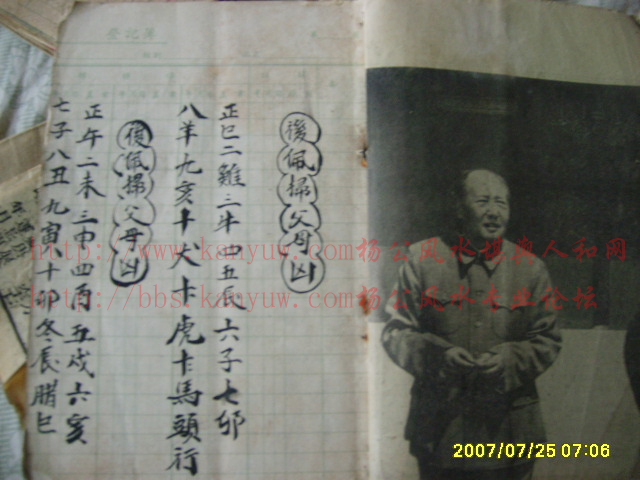 登記簿
後佩掃父母凶
正巳二雞三牛四五辰六子七卯
八羊九亥犬卡虎卡馬頭行
後佩掃父母凶
正午二未三申四酉五戌六亥
七子八丑九寅十卯冬辰腊巳
http://www.kanyuw.com杨公风水堪舆人和网
http://bbs.kanyuw.com杨公风水专业论坛
2007/07/25 07:06